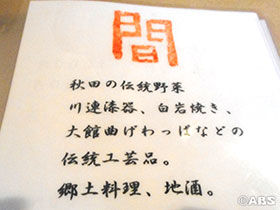 間
秋田の伝統野菜
川連漆器、白岩焼き、
大館曲げわっぱなどの
伝統工芸品。
郷土料理、地酒。
©ABS